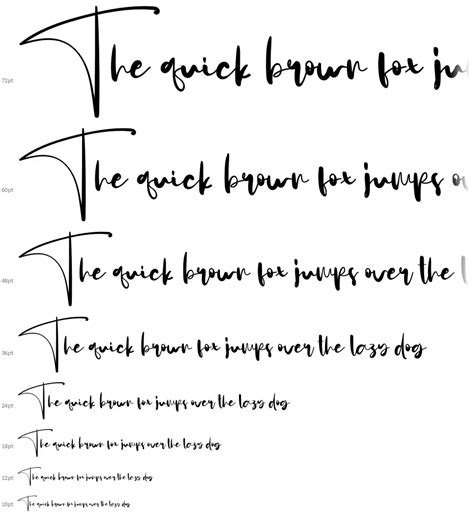 72pt The quick brown fox ju
60pt The quick brown fox jumps o
48pt The quick brown fox jumps over the l
36pt The quick brown fox jumps over the lazy dog
24pt The quick brown fox jumps over the lazy dog
18pt The quick brown fox jumps over the lazy dog
12pt The quick brown fox jumps over the lazy dog
10pt The quick brown fox jumps over the lazy dog